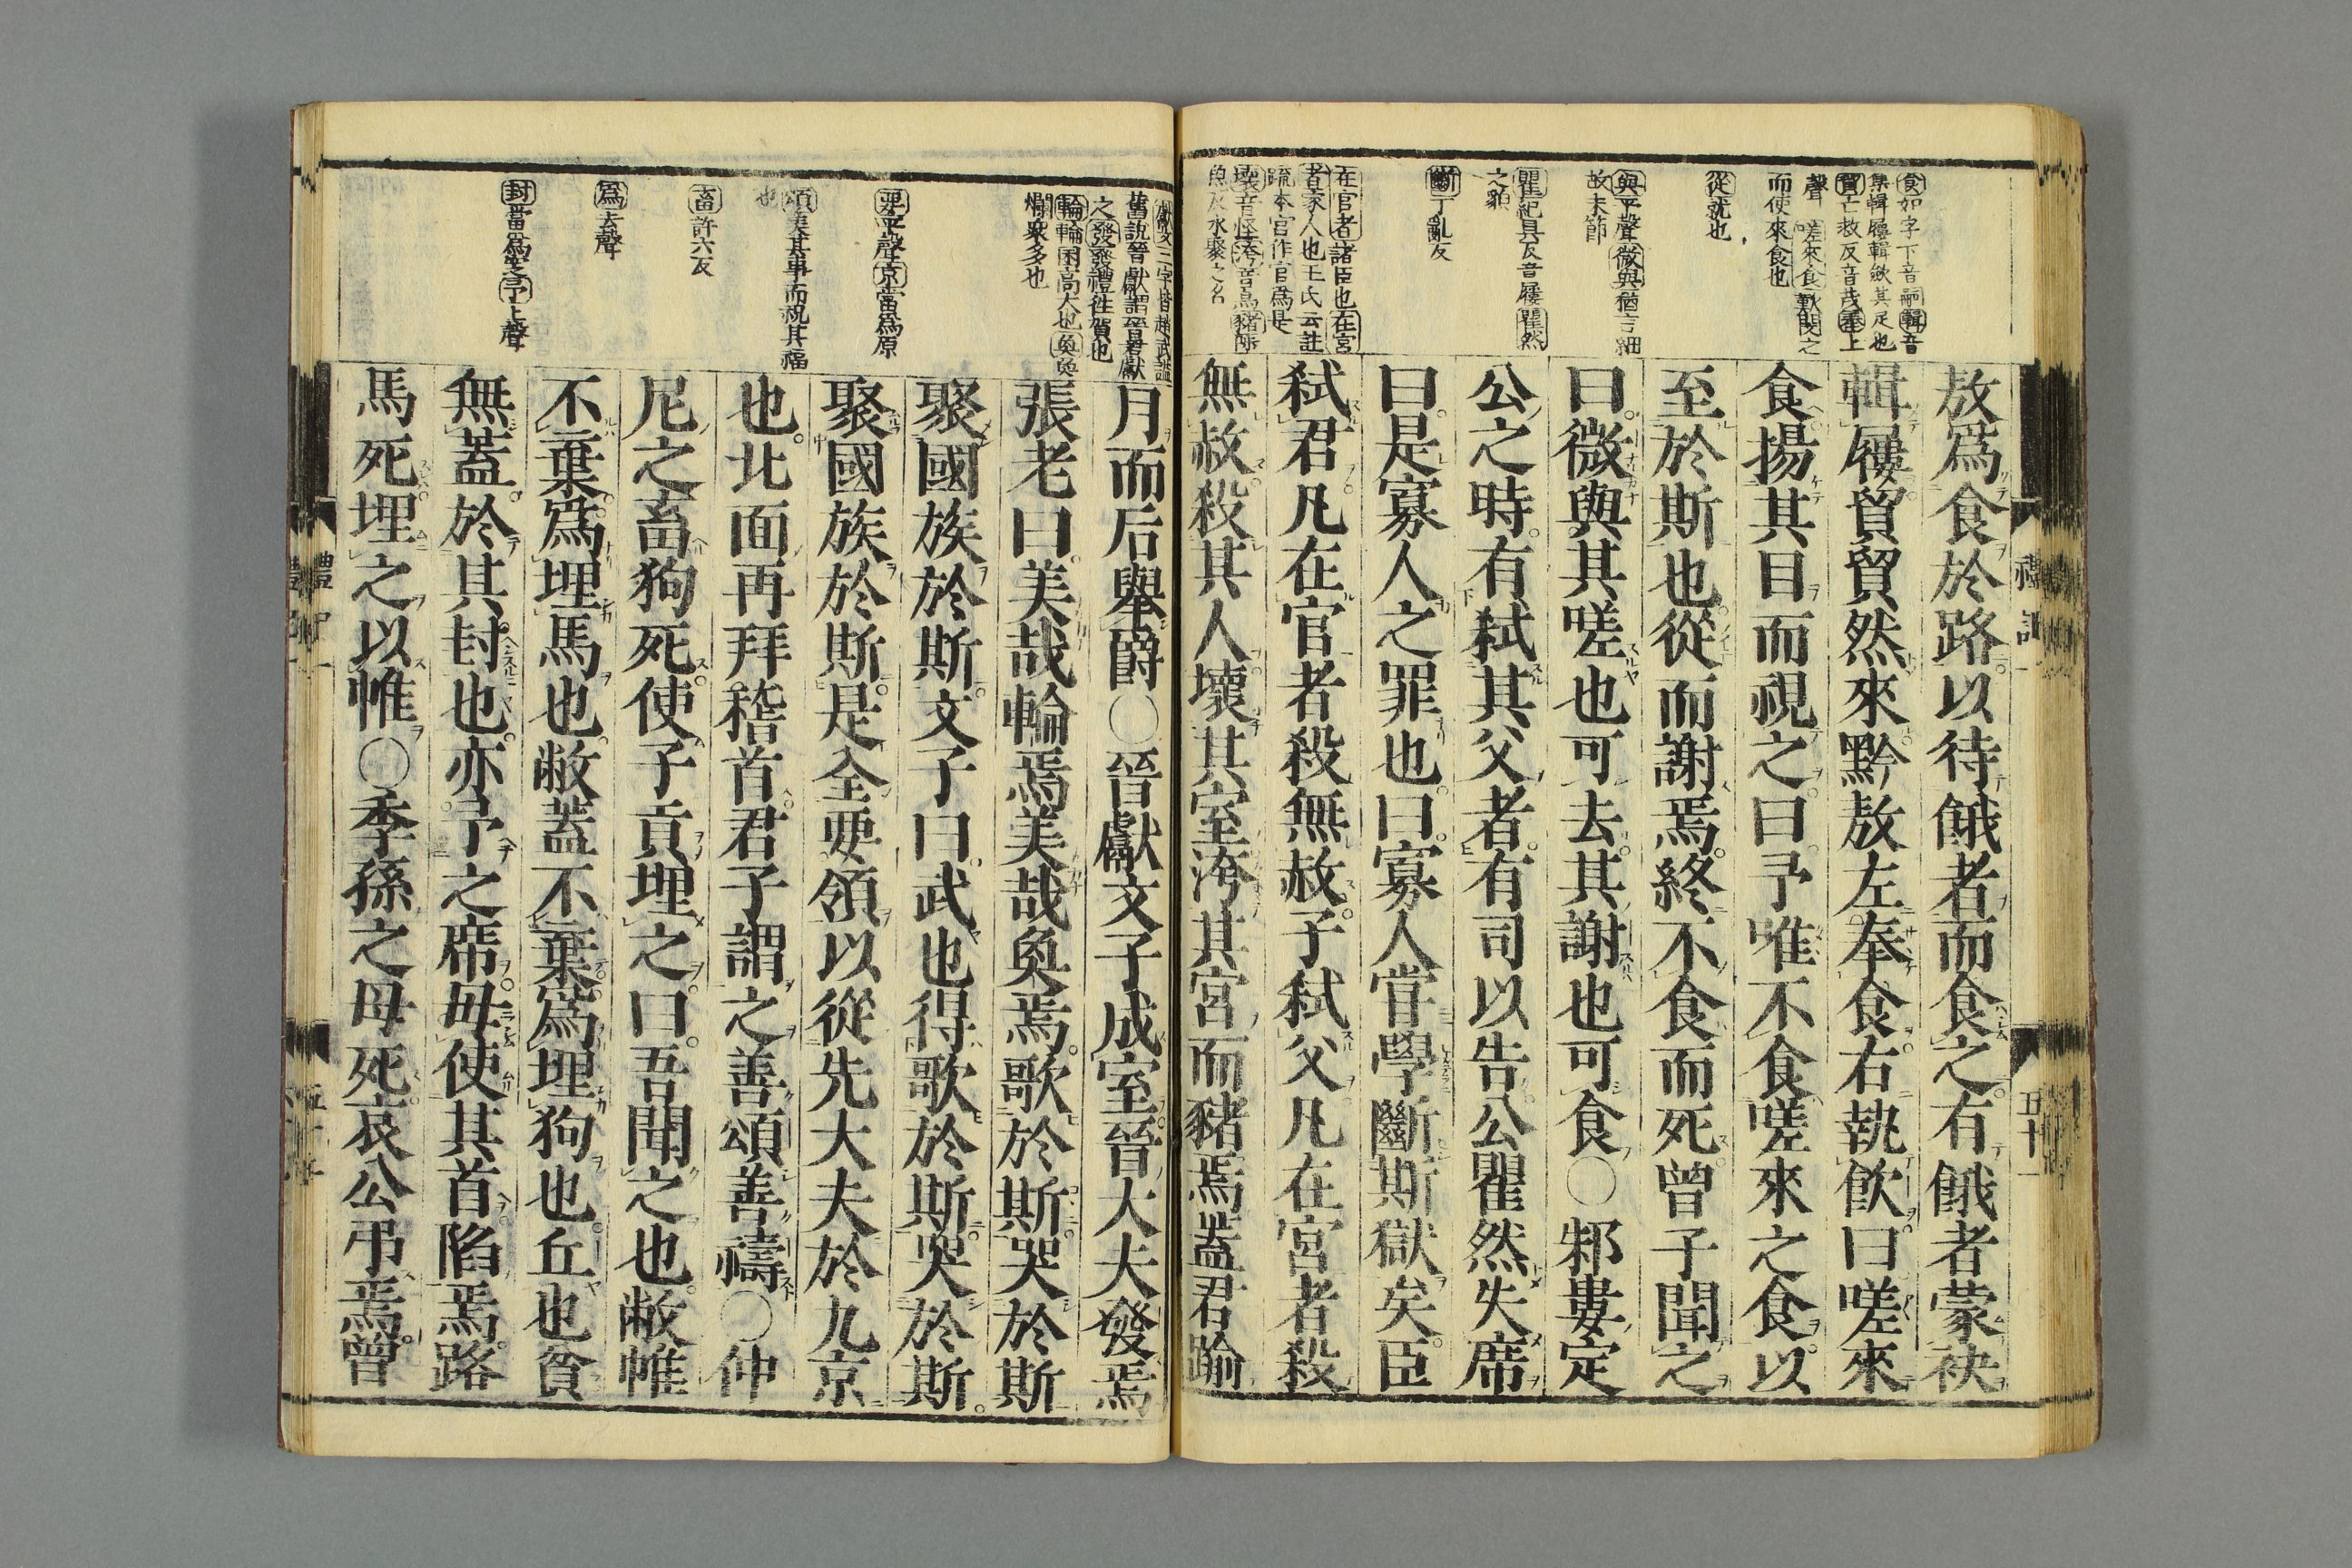 食如字下音嗣輯音
集輯屨輯斂其足也
貿亡救反音茂奉上
聲嗟來食歎閔之
而使來食也
從就也
與平聲微與猶言細
故末節
瞿紀具反音屨瞿然
之貌
斷丁亂反
在官者諸臣也在宮
者家人也王氏云註
疏本宮作官爲是
壞音怪洿音烏豬
魚反水聚之名
敖爲食於路以待餓者而食之有餓者蒙袂
輯屨貿貿然來黔敖左奉食右執飲曰嗟來
食揚其目而視之曰予唯不食嗟來之食以
至於斯也從而謝焉終不食而死曾子聞之
曰微與其嗟也可去其謝也可食〇邾婁定
公之時有弑其父者有司以告公瞿然失席
曰是寡人之罪也曰寡人嘗學斷斯獄矣臣
弑君凡在官者殺無赦子弑父凡在宮者殺
無赦殺其人壞其室洿其宮而豬焉蓋君踰
禮記一
五十一
獻文二字皆趙武諡
舊說晉獻謂晉君獻
之發發禮往賀也
輪輪囷高大也奐奐
爛衆多也
要平聲京當爲原
頌美其事而祝其福
也
畜許六反
爲去聲
封當爲窆予上聲
月而后舉爵〇晉獻文子成室晉大夫發焉
張老曰美哉輪焉美哉奐焉歌於斯哭於斯
聚國族於斯文子曰武也得歌於斯哭於斯
聚國族於斯是全要領以從先大夫於九京
也北面再拜稽首君子謂之善頌善禱〇仲
尼之畜狗死使子貢埋之曰吾聞之也敝帷
不棄爲埋馬也敝蓋不棄爲埋狗也丘也貧
無蓋於其封也亦予之席毋使其首陷焉路
馬死埋之以帷〇季孫之母死哀公弔焉曾